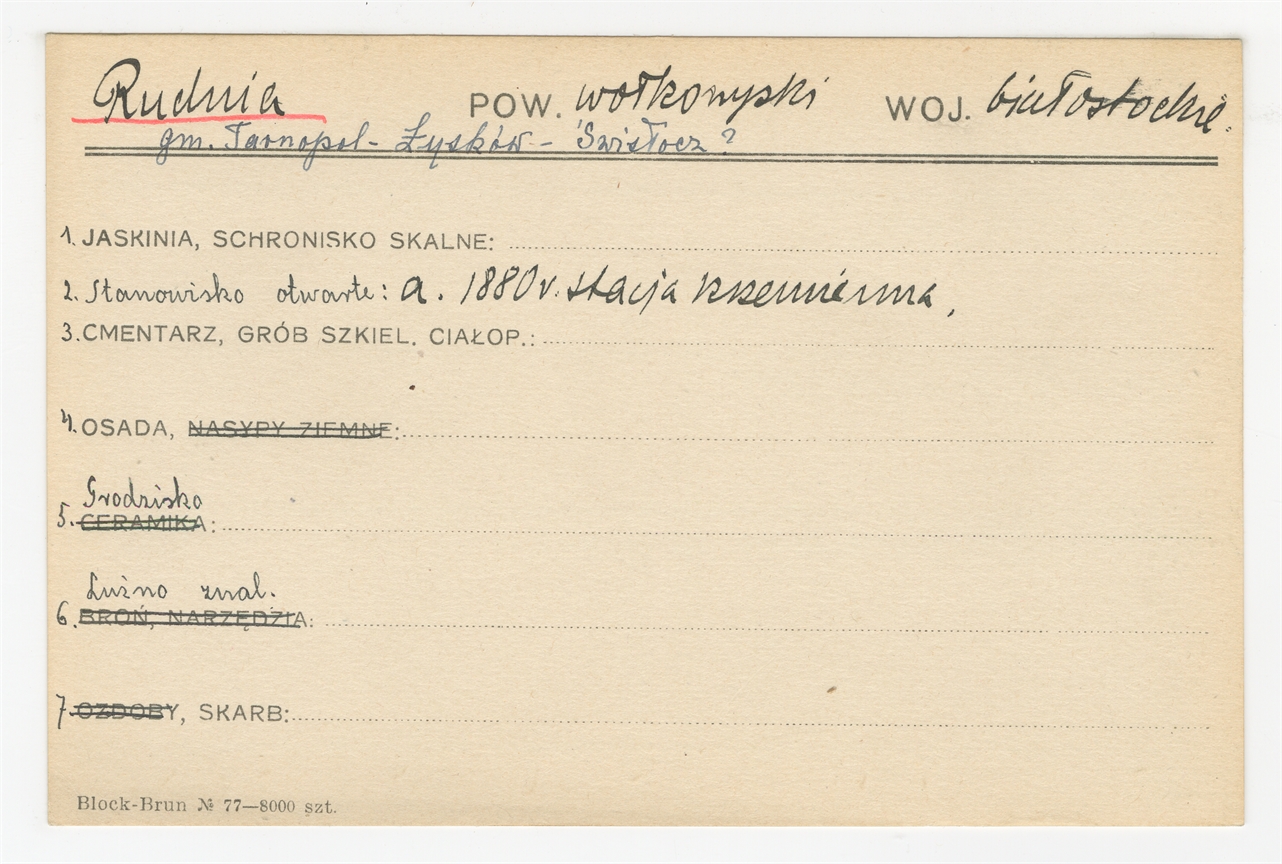 Rudnia POW. wołkowyski WOJ. białostockie.
gm. Tarnopol - Łysków - Świsłocz?
1. JASKINIA, SCHRONISKO SKALNE:
2. Stanowisko otwarte: a. 1880 r. stacja krzemienna,
3. CMENTARZ, GRÓB SZKIEL. CIAŁOP.:
4. OSADA, NASYPY ZIEMNE:
Grodzisko
5. CERAMIKA:
Luźno znal.
6. BROŃ, NARZĘDZIA:
7. OZDOBY, SKARB:
Block-Brun № 77—8000 szt.